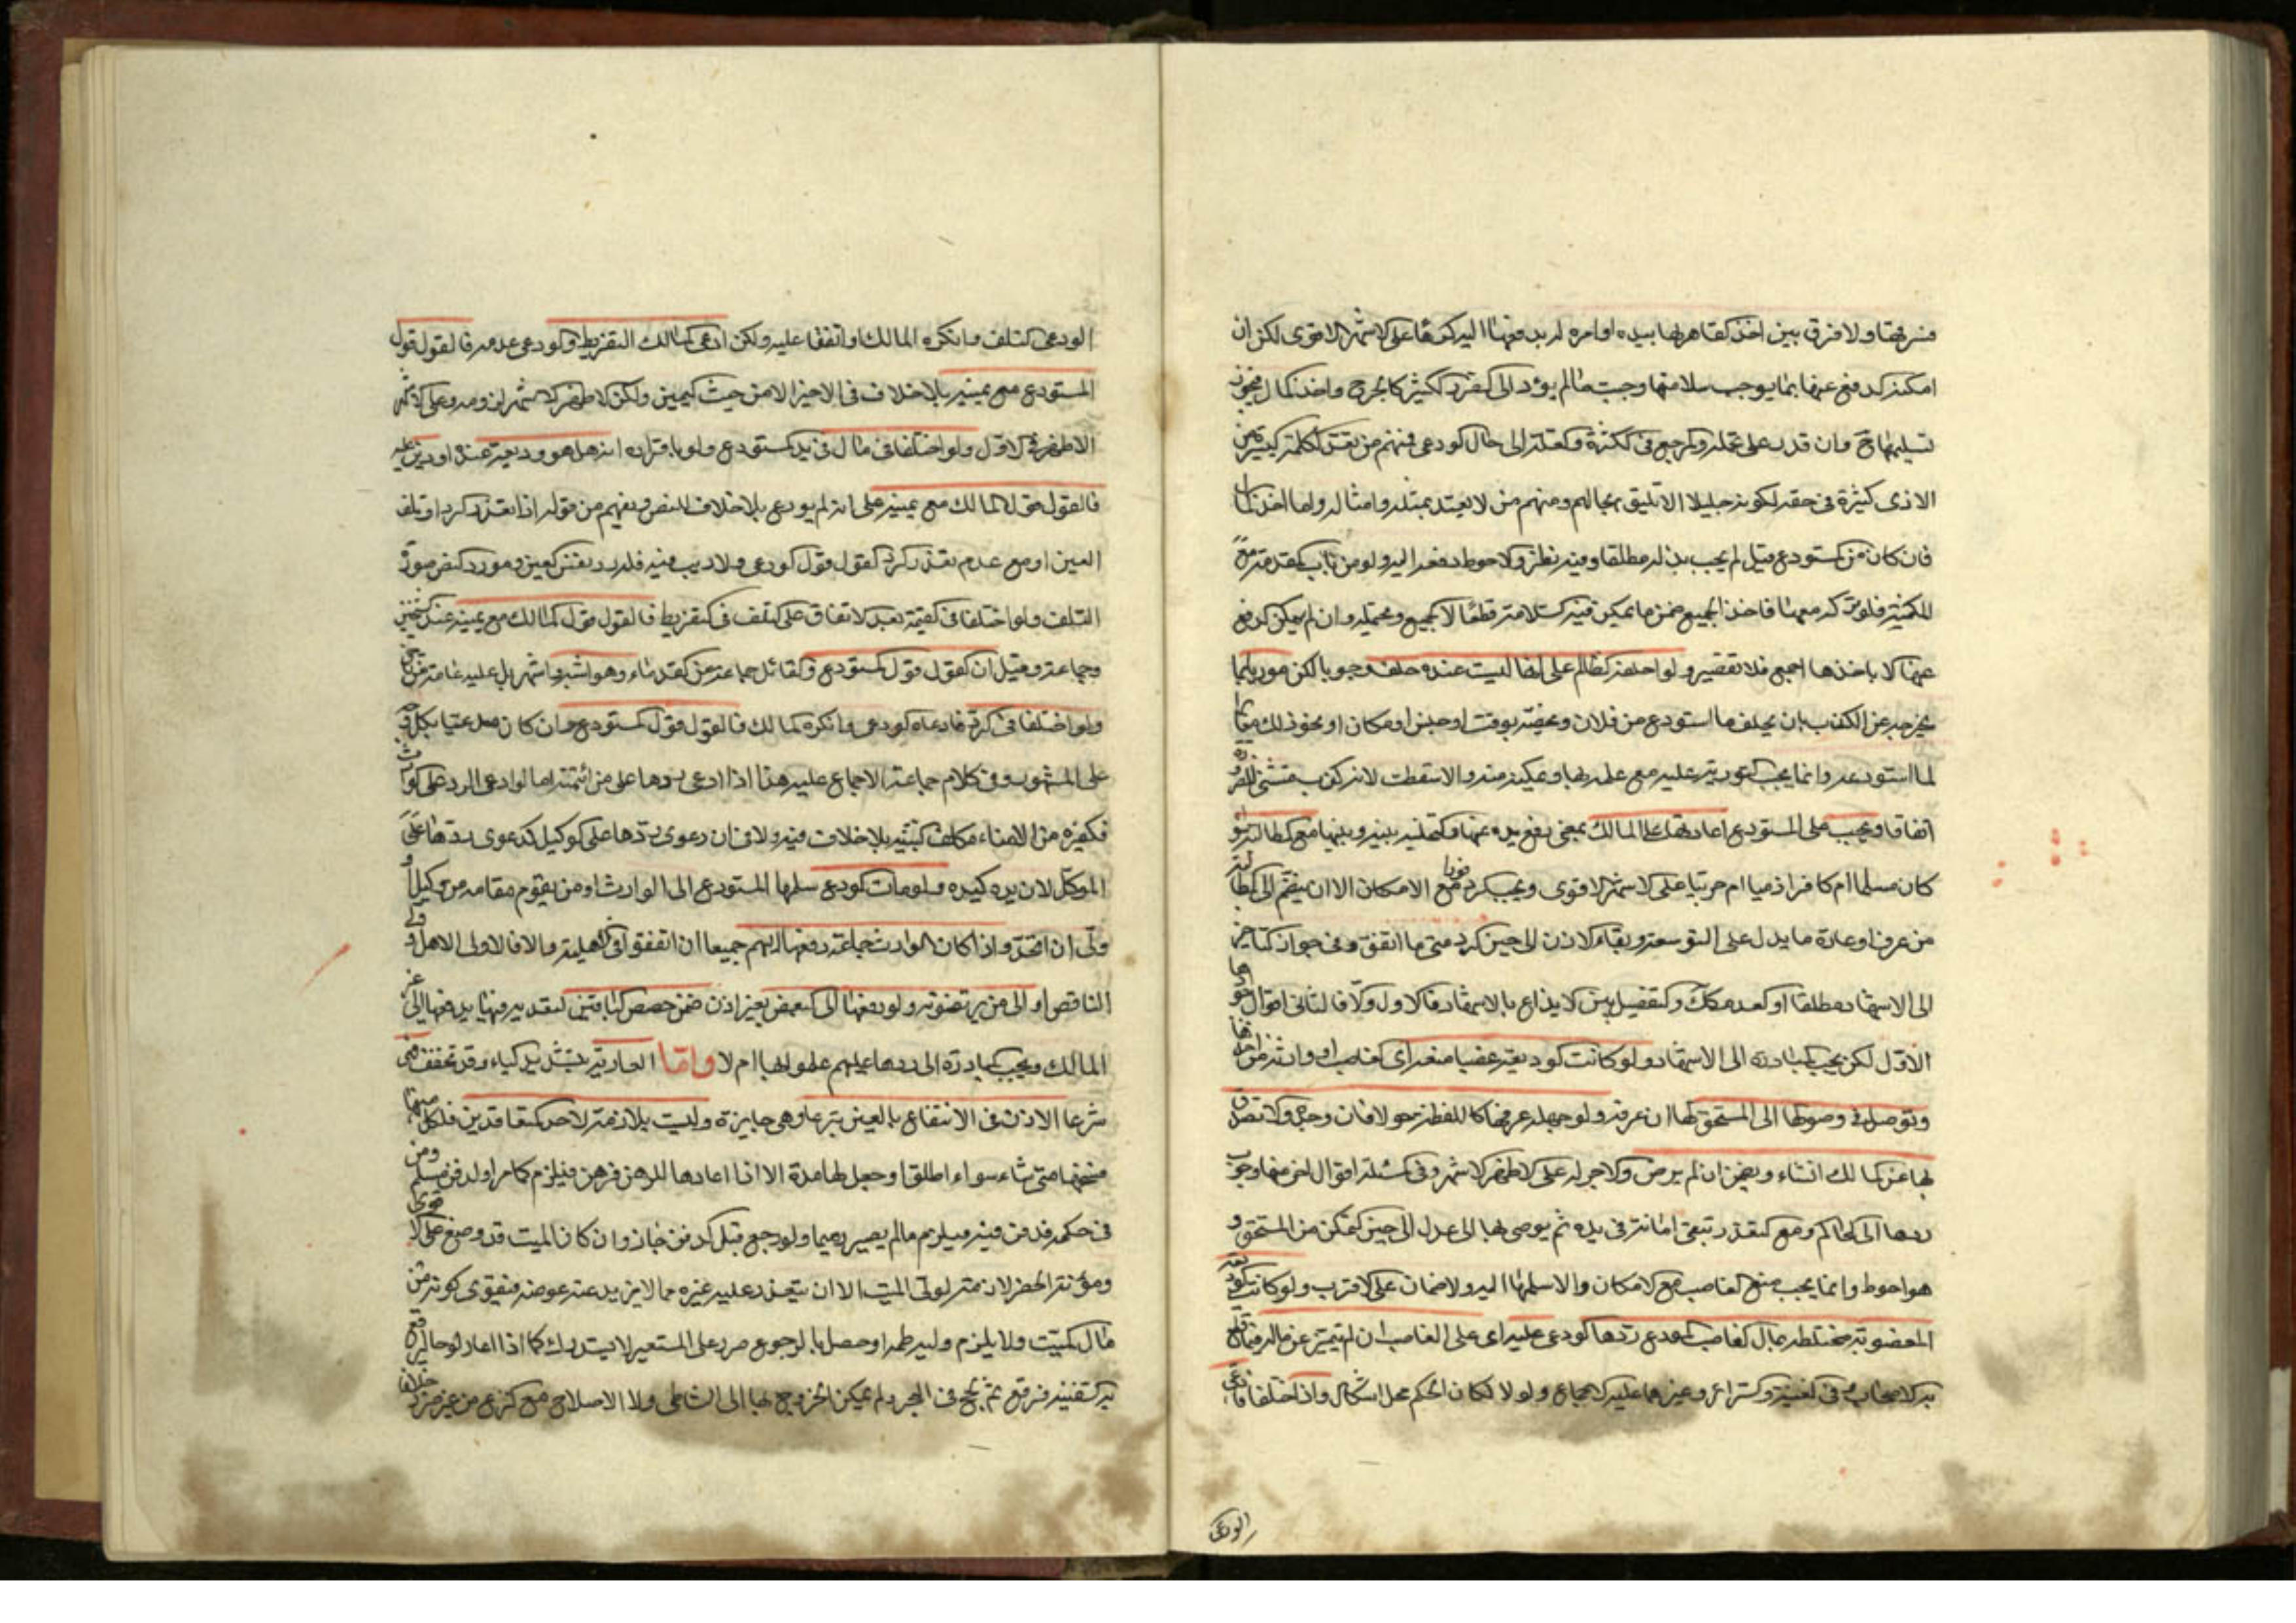 ولا فرق بين اخذ القاهر لها بيده او امره له بدفعها اليه كرها على الاشهر الاقوى لكن ان
امكنه الدفع عنها بما يوجب سلامتها وجب ما لم يؤد الى الضرر الكثير كالجرح واخذ المال فيجوز
تسليمها ح وان قدر على تحمله والمرجع في الكثرة والقلة الى حال الودعي فمنهم من تعد الكلمة اليسيرة من
الاذى كثيرة في حقه لكونه جليلا لا تليق بحالهم ومنهم من لا يعتد بمثله وامثاله واما اخذ المال
فان كان من المستودع قيل لم يجب بذله مطلقا وفيه نظر والاحوط دفعه اليه ولو من باب المقدمة
فلو ترك معها فاخذ الجميع ضمن ما يمكن فيه السلامة قطعا لا الجميع ويحتمله وان لم يمكن الدفع
عنها الا باخذها اجمع فلا تقصير ولو احلفه الظالم على انها ليست عنده حلف وجوبا لكن موريا بما
يخرجه عن الكذب بان يحلف ما استودع من فلان ويخصه بوقت او جنس او مكان او نحو ذلك مغايرا
لما استودعه وانما يجب التورية عليه مع علمه بها وتمكينه منه والا سقطت لانه كذب مستثنى للضرورة
اتفاقا ويجب على المستودع اعادتها على المالك بمعنى رفع يده عنها والتخلية بينه وبينها مع المطالبة سواء
كان مسلما ام كافرا ذميا ام حربيا على الاشهر الاقوى ويجب الرد فورا مع الامكان الا ان ينضم الى المطالبة
من عرف او عادة ما يدل على التوسعة وبقاء الاذن الى حين الرد متى ما اتفق وفي جواز التاخير
الى الاشهاد مطلقا او العدم كك والتفصيل بين الايداع بالاشهاد فالاول والا فالثاني اقوال احوطها
الاول لكن يجب المبادرة الى الاشهاد ولو كانت الوديعة غصبا منعها اي الغاصب او وارثه من اخذها
وتوصل في وصولها الى المستحق لها ان عرفه ولو جهله عرفها كاللقطة حولا فان وجد والا تصدق
بها عن المالك انشاء ويضمن ان لم يرض والاجر له على الاظهر الاشهر وفي المسئلة اقوال اخر منها وجوب
ردها الى الحاكم ومع التعذر تبقى امانة في يده ثم يوصي بها الى عدل الى حين التمكن من المستحق و
هو احوط وانما يجب منع الغاصب مع الامكان والا سلمها اليه ولا ضمان على الاقرب ولو كانت الوديعة
المغصوبة مختلطة بمال الغاصب المودع ردها الودعي عليه اي على الغاصب ان لم يتميز عن ماله وفاقا
به الاصحاب في الغنية والسرائر وغيرهما عليه الاجماع ولولا لكان الحكم محل اشكال واذا اختلفا فادعى
الودعي
الودعي التلف وانكره المالك او اتفقا عليه ولكن ادعى المالك التفريط والودعي عدمه فالقول قول
المستودع مع يمينه بلا خلاف في الاخير الا من حيث اليمين ولكن الاظهر الاشهر لزومه وعلى الاشهر
الاظهر في الاول ولو اختلفا في مال في يد المستودع ولو باقراره انه هل هو وديعة عنده او دين عليه
فالقول قول المالك مع يمينه على انه لم يودع بلا خلاف للنص ويفهم من قوله اذا تعذر الرد او تلف
العين او مع عدم تعذر الرد القول قول الودعي ولا ريب فيه فله رد نفس العين ومورد النص صورة
التلف ولو اختلفا في القيمة بعد الاتفاق على التلف في التفريط فالقول قول المالك مع يمينه عند الشيخين
وجماعة وقيل ان القول قول المستودع والقائل جماعة من القدماء وهو اشبه واشهر بل عليه عامة من تاخر
ولو اختلفا في الرد فادعاه الودعي وانكره المالك فالقول قول المستودع وان كان مدعيا بكل وجه
على المشهور وفي كلام جماعة الاجماع عليه هذا اذا ادعى ردها على من ائتمنه اما لو ادعى الرد على الوارث
فكغيره من الامناء فكلف البينة بلا خلاف فيه ولا في ان دعوى ردها على الوكيل كدعوى ردها على
الموكل لان يده كيده ولو مات المودع سلمها المستودع الى الوارث او من يقوم مقامه من وكيل او
ولي ان اتحد واذا كان الوارث جماعة دفعها اليهم جميعا ان اتفقوا في الاهلية والا فالى الاهل وولي
الناقص او الى من يرتضونه ولو دفعها الى البعض بغير اذن ضمن حصص الباقين لتعديه فيها بدفعها الى غير
المالك ويجب المبادرة الى ردها عليهم علموا بها ام لا واما العارية بتشديد الياء وقد تخفف فهي
شرعا الاذن في الانتفاع بالعين تبرعا وهي جايزة وليست بلازمة لاحد المتعاقدين فلكل منهما
فسخها متى شاء سواء اطلقا او جعل لها مدة الا اذا اعارها للرهن فرهن فيلزم كما مر او لدفن مسلم ومن
في حكمه فدفن فيه فيلزم ما لم يصير رميما ولو رجع قبل الدفن جاز وان كان الميت قد وضع على الاقوى
ومؤنة الحفر لازمة لولي الميت الا ان يتعذر عليه غيره مما لا يزيد عنه عوضه فيقوى كونه من
مال الميت ولا يلزم وليه طمه او حصل بالرجوع ضرر على المستعير لا يستدرك كما اذا اعار لوحا ليرقع
به السفينة فرقع ثم لجج في البحر ولم يمكن الخروج بها الى الشاطئ ولا الاصلاح مع النزع من غير ضرر